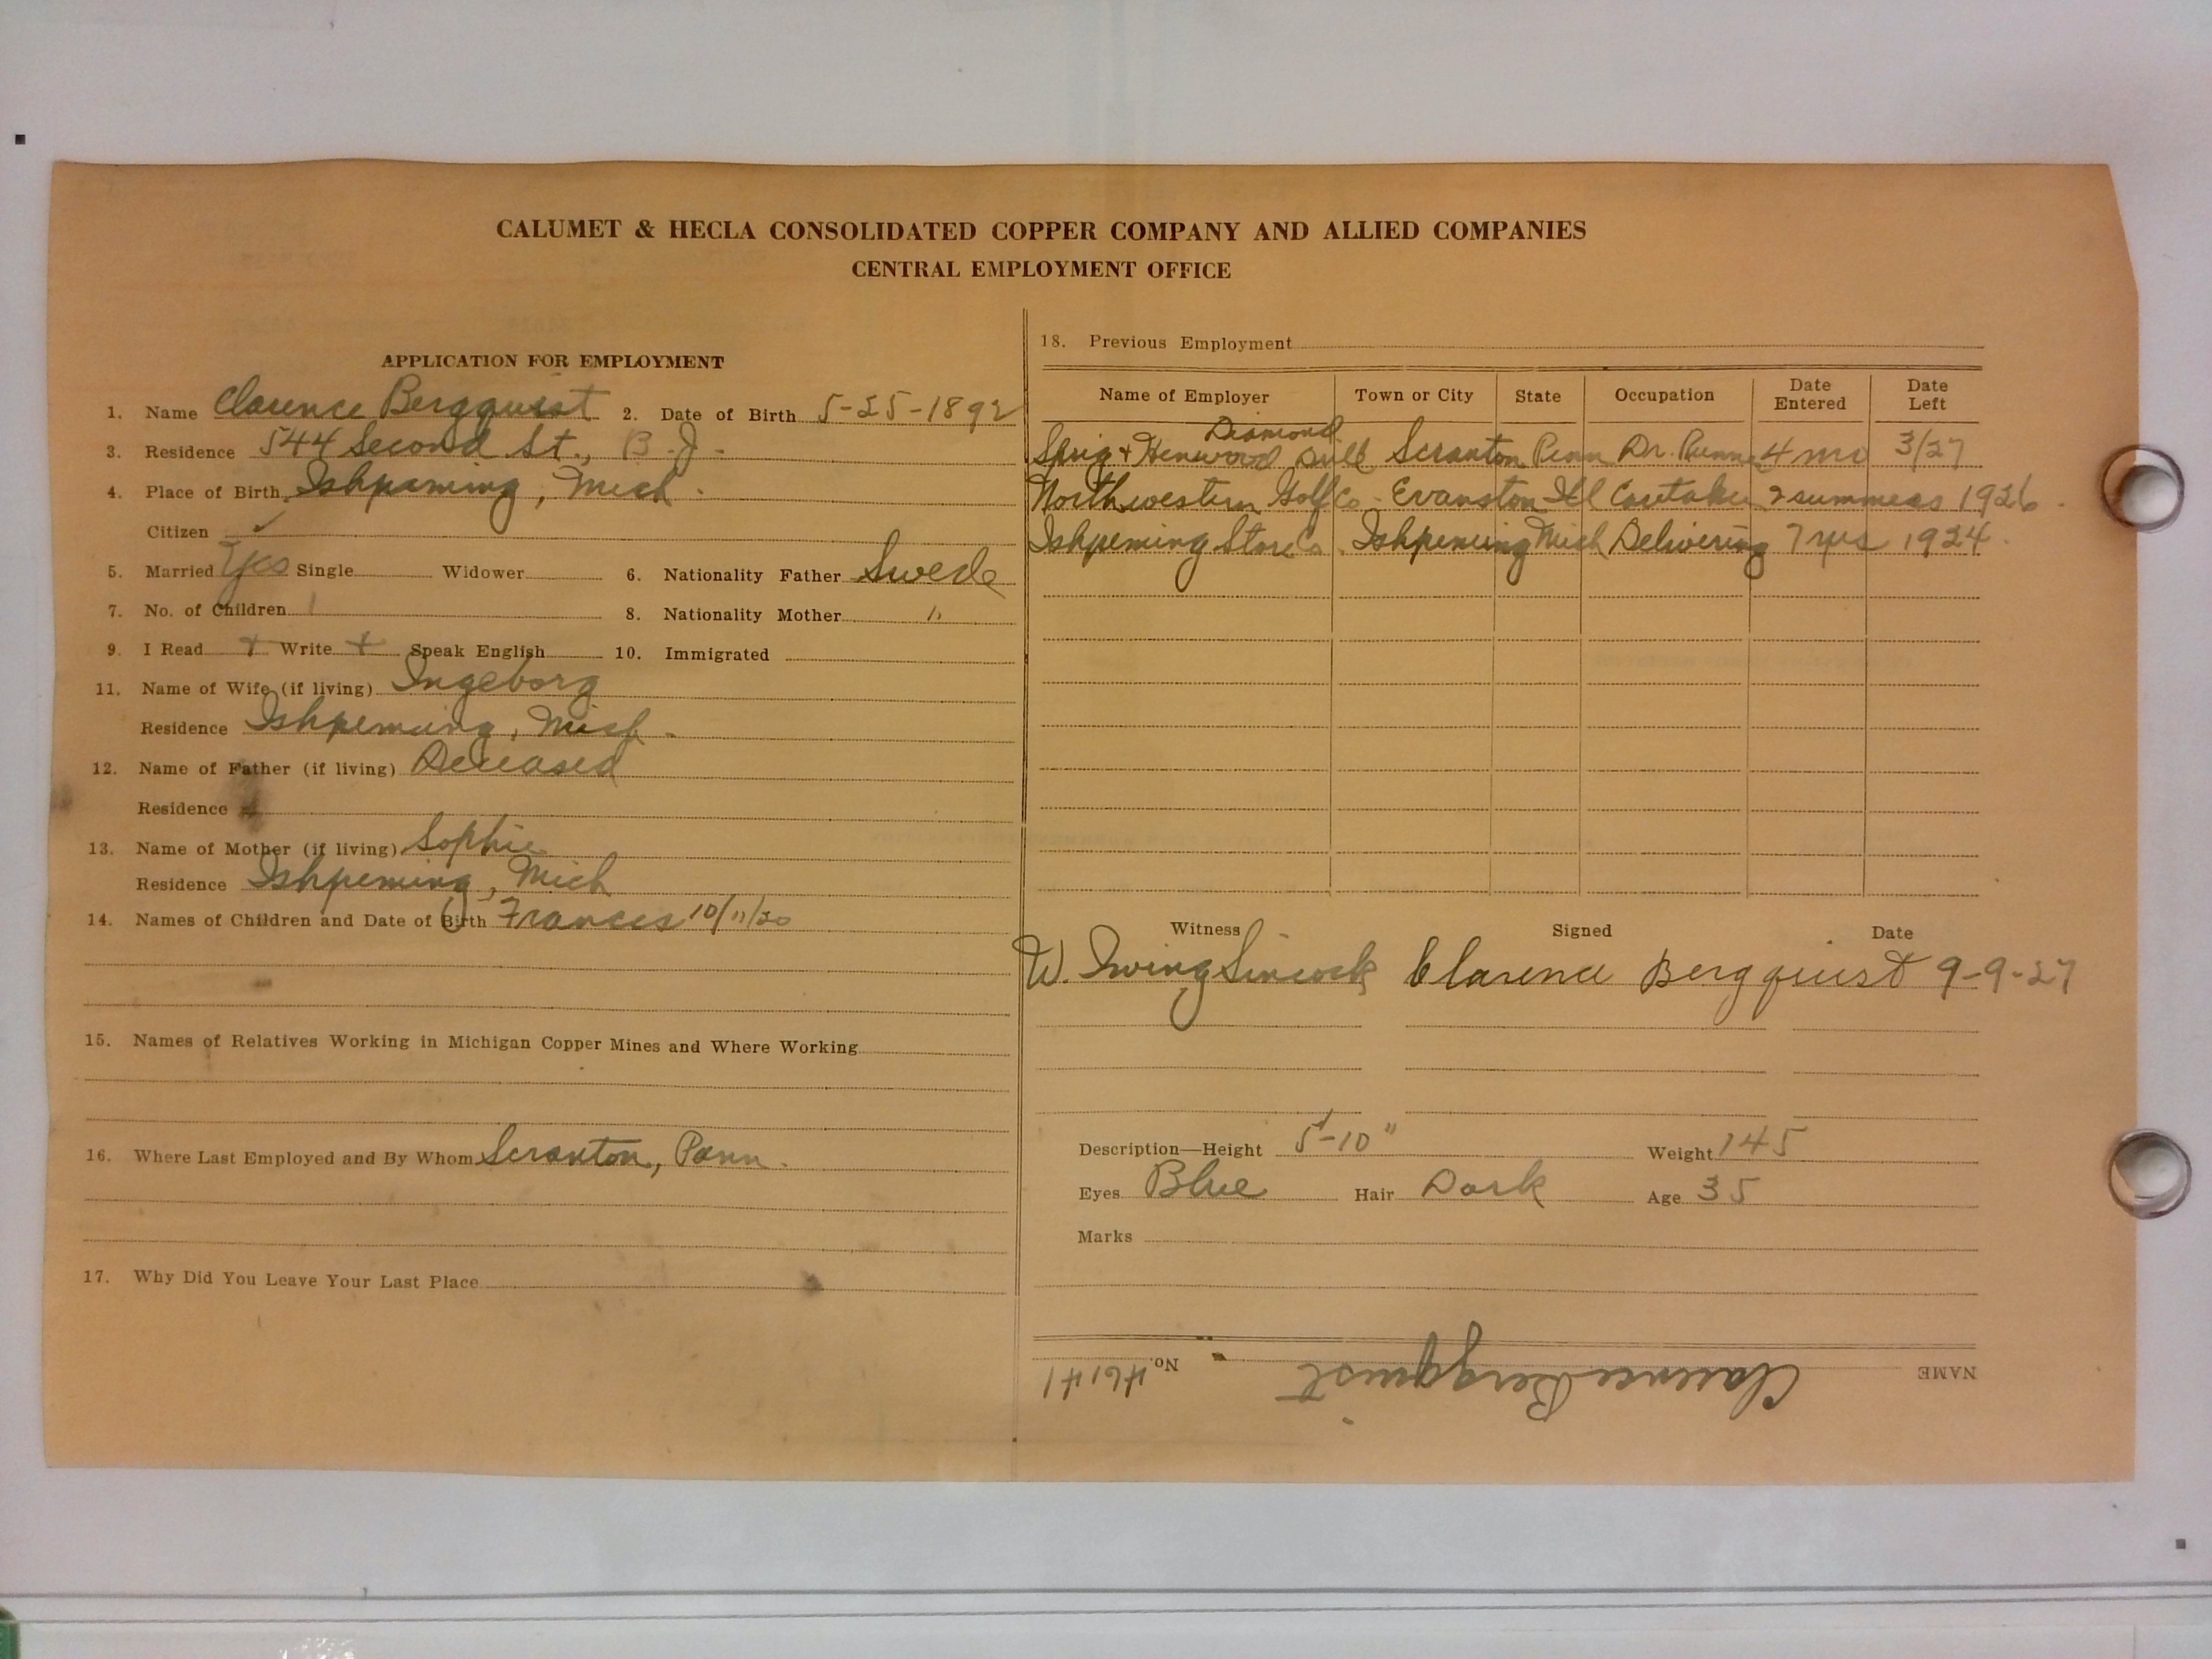 CALUMET & HECLA CONSOLIDATED COPPER COMPANY AND ALLIED COMPANIES
CENTRAL EMPLOYMENT OFFICE
APPLICATION FOR EMPLOYMENT
1. Name Clarence Bergquist 2. Date of Birth 5-25-1892
3. Residence 544 Second St., B.J.
4. Place of Birth Ishpeming, Mich.
Citizen ✓
5. Married Yes Single Widower 6. Nationality Father Swede
7. No. of Children 1 8. Nationality Mother "
9. I Read + Write + Speak English 10. Immigrated
11. Name of Wife (if living) Ingeborg
Residence Ishpeming, Mich.
12. Name of Father (if living) Deceased
Residence
13. Name of Mother (if living) Sophie
Residence Ishpeming, Mich
14. Names of Children and Date of Birth Frances 10/11/20
15. Names of Relatives Working in Michigan Copper Mines and Where Working
16. Where Last Employed and By Whom Scranton, Penn.
17. Why Did You Leave Your Last Place
18. Previous Employment
Name of Employer Town or City State Occupation Date Entered Date Left
Diamond
Sprig + Henwood Drill Scranton Penn Dr. Runner 4 mo 3/27
Northwestern Golf Co. Evanston Ill Caretaker 2 summers 1926.
Ishpeming Store Co. Ishpeming Mich Delivering 7 yrs 1924.
Witness Signed Date
W. Irving Sincock Clarence Bergquist 9-9-27
Description—Height 5'-10" Weight 145
Eyes Blue Hair Dark Age 35
Marks
NAME Clarence Bergquist No. 46141